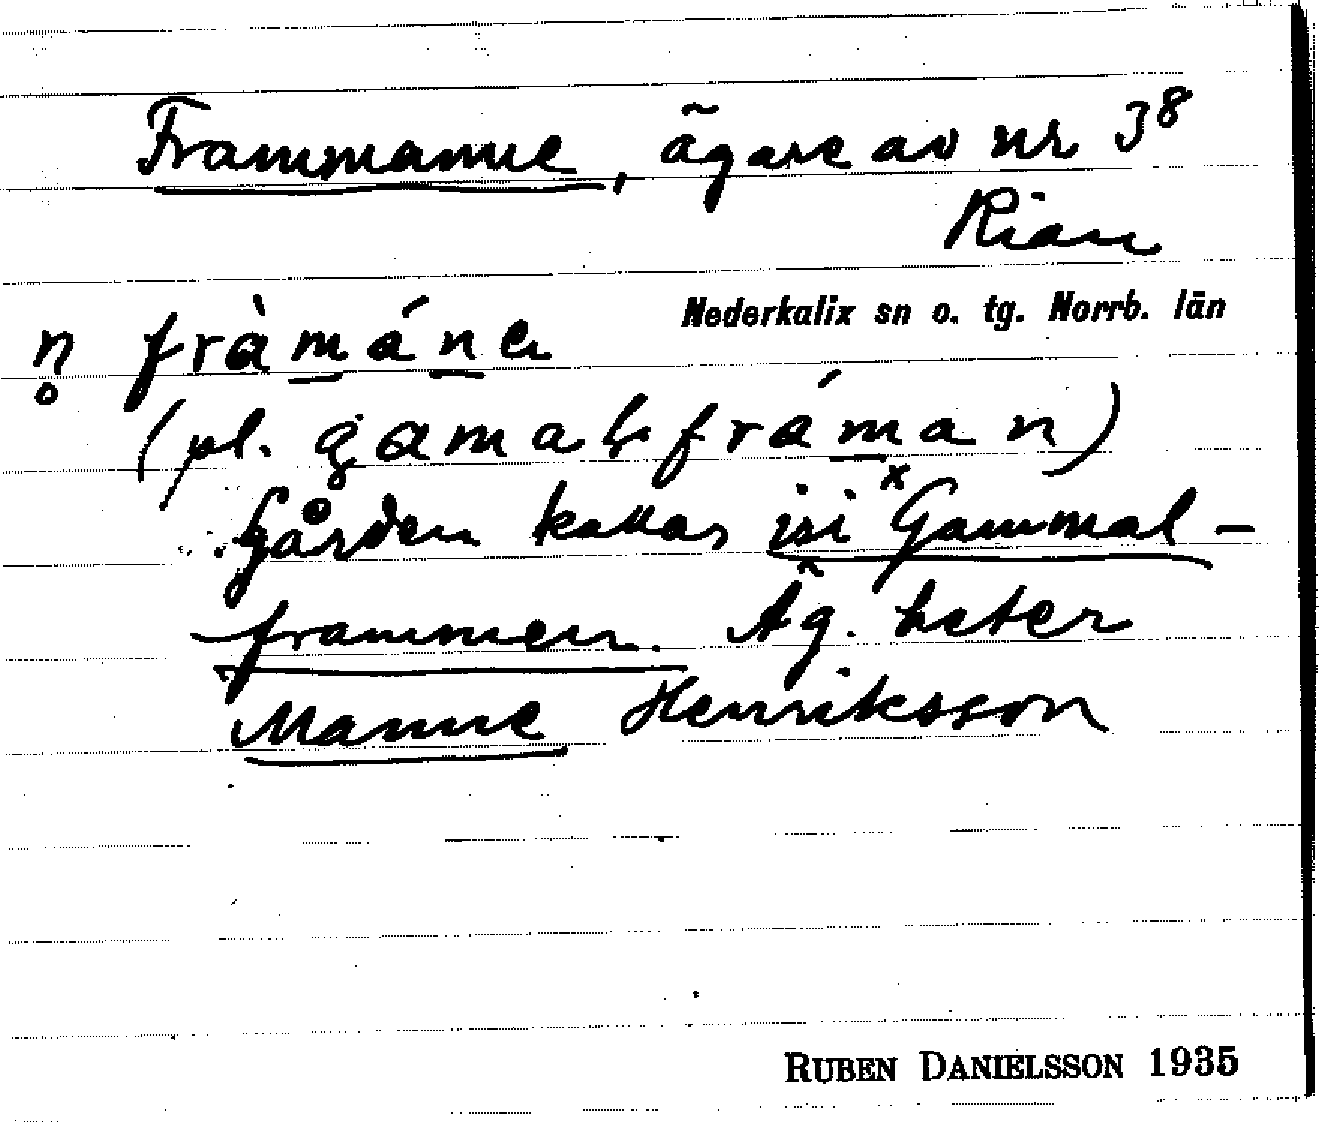 Frammanne, ägare av nr 3⁸
Rian
Nederkalix sn o. tg. Norrb. län
n̥ fràmánɐ
(pl. gamalfráman)
Gården kallas isi ˣGammal-
frammen. Äg. heter
Manne Henriksson
RUBEN DANIELSSON 1935